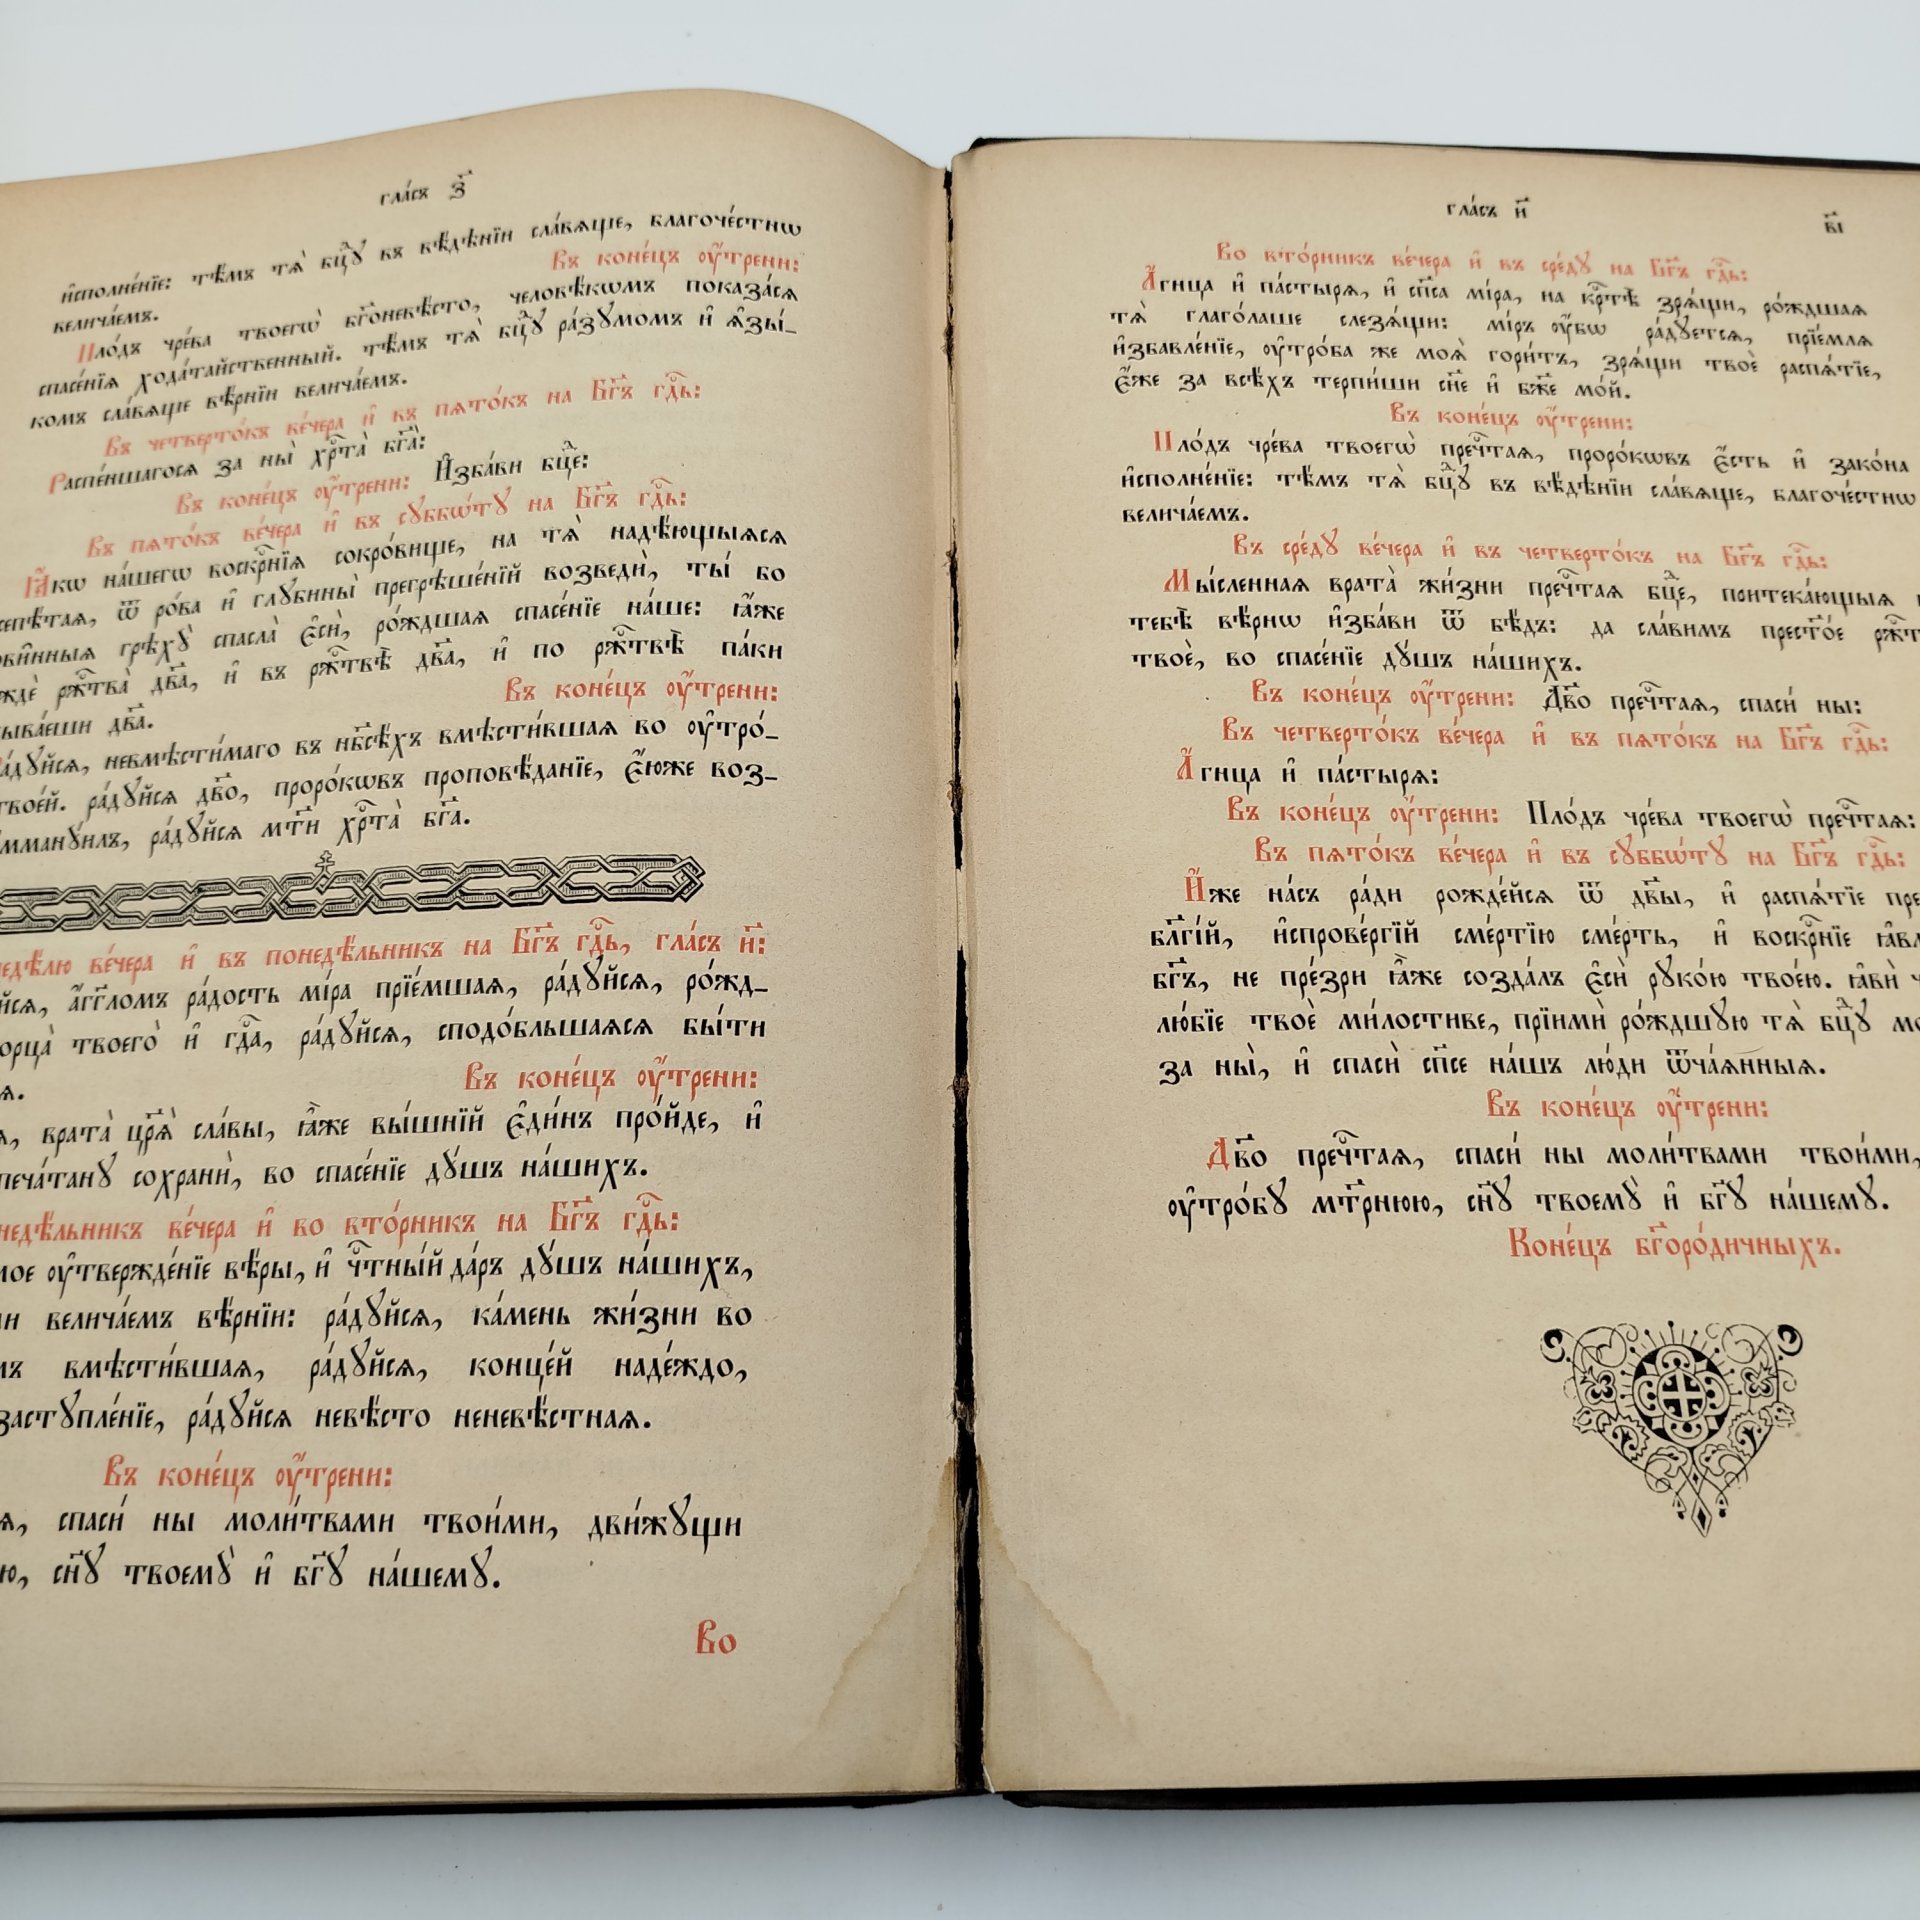 гла́съ з҃
и҆сполне́нїе: тѣ́мъ тѧ̀ бц҃ꙋ въ вѣ́дѣнїи сла́вѧще, благоче́стнѡ
велича́емъ.
Въ коне́цъ ᲂу҆́трени:
Пло́дъ чре́ва твоегѡ̀ бг҃оневѣ́сто, человѣ́кѡмъ показа́сѧ
спасе́нїѧ хода́тайственный. тѣ́мъ тѧ̀ бц҃ꙋ ра́зꙋмомъ и҆ ѧ҆зы́_
комъ сла́вѧще вѣ́рнїи велича́емъ.
Въ четверто́къ ве́чера и҆ въ пѧто́къ на Бг҃ъ гдⷭ҇ь:
Распе́ншагосѧ за ны̀ хрⷭ҇та̀ бг҃а̀:
Въ коне́цъ ᲂу҆́трени: И҆зба́ви бцⷣе:
Въ пѧто́къ ве́чера и҆ въ сꙋббѡ́тꙋ на Бг҃ъ гдⷭ҇ь:
Ꙗ҆́кѡ на́шегѡ воскрⷭ҇нїѧ сокро́вище, на тѧ̀ надѣ́ющыѧсѧ
ѿ ро́ва и҆ глꙋбины̀ прегрѣше́нїй возведѝ, ты́ бо
грѣхꙋ̀ спасла̀ є҆сѝ, ро́ждшаѧ спасе́нїе на́ше: ꙗ҆́же
ржⷭ҇тва̀ дв҃а, и҆ въ ржⷭ҇твѣ̀ дв҃а, и҆ по ржⷭ҇твѣ̀ па́ки
дв҃а.
Въ коне́цъ ᲂу҆́трени:
невмѣсти́маго въ нб҃сѣ́хъ вмѣсти́вшаѧ во ᲂу҆тро́_
твое́й. ра́дꙋйсѧ дв҃о, проро́кѡвъ проповѣ́данїе, є҆́юже воз_
ра́дꙋйсѧ мт҃и хрⷭ҇та̀ бг҃а.
ве́чера и҆ въ понедѣ́льникъ на Бг҃ъ гдⷭ҇ь, гла́съ и҃:
а҆́гг҃ломъ ра́дость мі́ра прїе́мшаѧ, ра́дꙋйсѧ, ро́жд_
твоего̀ и҆ гдⷭ҇а, ра́дꙋйсѧ, сподо́бльшаѧсѧ бы́ти
Въ коне́цъ ᲂу҆́трени:
врата̀ цр҃ѧ̀ сла́вы, ꙗ҆́же вы́шнїй є҆ди́нъ про́йде, и҆
сохранѝ, во спасе́нїе дꙋ́шъ на́шихъ.
ве́чера и҆ во вто́рникъ на Бг҃ъ гдⷭ҇ь:
ᲂу҆твержде́нїе вѣ́ры, и҆ чⷭ҇тны́й да́ръ дꙋ́шъ на́шихъ,
велича́емъ вѣ́рнїи: ра́дꙋйсѧ, ка́мень жи́зни во
вмѣсти́вшаѧ, ра́дꙋйсѧ, конце́й наде́ждо,
застꙋпле́нїе, ра́дꙋйсѧ невѣ́сто неневѣ́стнаѧ.
Въ коне́цъ ᲂу҆́трени:
спаси́ ны моли́твами твои́ми, дви́жꙋщи
сн҃ꙋ твоемꙋ̀ и҆ бг҃ꙋ на́шемꙋ.
Во
гла́съ и҃
в҃і
Во вто́рникъ ве́чера и҆ въ сре́дꙋ на Бг҃ъ гдⷭ҇ь:
А҆́гница и҆ па́стырѧ, и҆ сп҃са мі́ра, на крⷭ҇тѣ̀ зрѧ́щи, ро́ждшаѧ
тѧ̀ глаго́лаше слезѧ́щи: мі́ръ ᲂу҆́бѡ ра́дꙋетсѧ, прїе́млѧ
и҆збавле́нїе, ᲂу҆тро́ба же моѧ̀ гори́тъ, зрѧ́щи твоѐ распѧ́тїе,
є҆́же за всѣ́хъ терпи́ши сн҃е и҆ бж҃е мо́й.
Въ коне́цъ ᲂу҆́трени:
Пло́дъ чре́ва твоегѡ̀ пречⷭ҇таѧ, проро́кѡвъ є҆́сть и҆ зако́на
и҆сполне́нїе: тѣ́мъ тѧ̀ бц҃ꙋ въ вѣ́дѣнїи сла́вѧще, благоче́стнѡ
велича́емъ.
Въ сре́дꙋ ве́чера и҆ въ четверто́къ на Бг҃ъ гдⷭ҇ь:
Мы́сленнаѧ врата̀ жи́зни пречⷭ҇таѧ бцⷣе, притека́ющыѧ
тебѣ̀ вѣ́рнѡ и҆зба́ви ѿ бѣ́дъ: да сла́вимъ прест҃о́е
твоѐ, во спасе́нїе дꙋ́шъ на́шихъ.
Въ коне́цъ ᲂу҆́трени: Дв҃о пречⷭ҇таѧ, спаси́ ны:
Въ четверто́къ ве́чера и҆ въ пѧто́къ на Бг҃ъ гдⷭ҇ь:
А҆́гница и҆ па́стырѧ:
Въ коне́цъ ᲂу҆́трени: Пло́дъ чре́ва твоегѡ̀ пречⷭ҇таѧ:
Въ пѧто́къ ве́чера и҆ въ сꙋббѡ́тꙋ на Бг҃ъ гдⷭ҇ь:
И҆́же на́съ ра́ди рожде́йсѧ ѿ дв҃ы, и҆ распѧ́тїе
бл҃гі́й, и҆спрове́ргїй сме́ртїю сме́рть, и҆ воскрⷭ҇нїе
бг҃ъ, не пре́зри ꙗ҆̀же созда́лъ є҆сѝ рꙋко́ю твое́ю. ꙗ҆вѝ
лю́бїе твоѐ ми́лостиве, прїимѝ ро́ждшꙋю тѧ̀ бц҃ꙋ
за ны̀, и҆ спасѝ сп҃се на́шъ лю́ди ѿча́ѧнныѧ.
Въ коне́цъ ᲂу҆́трени:
Дв҃о пречⷭ҇таѧ, спаси́ ны моли́твами твои́ми,
ᲂу҆тро́бꙋ мт҃рнюю, сн҃ꙋ твоемꙋ̀ и҆ бг҃ꙋ на́шемꙋ.
Коне́цъ бг҃оро́дичныхъ.